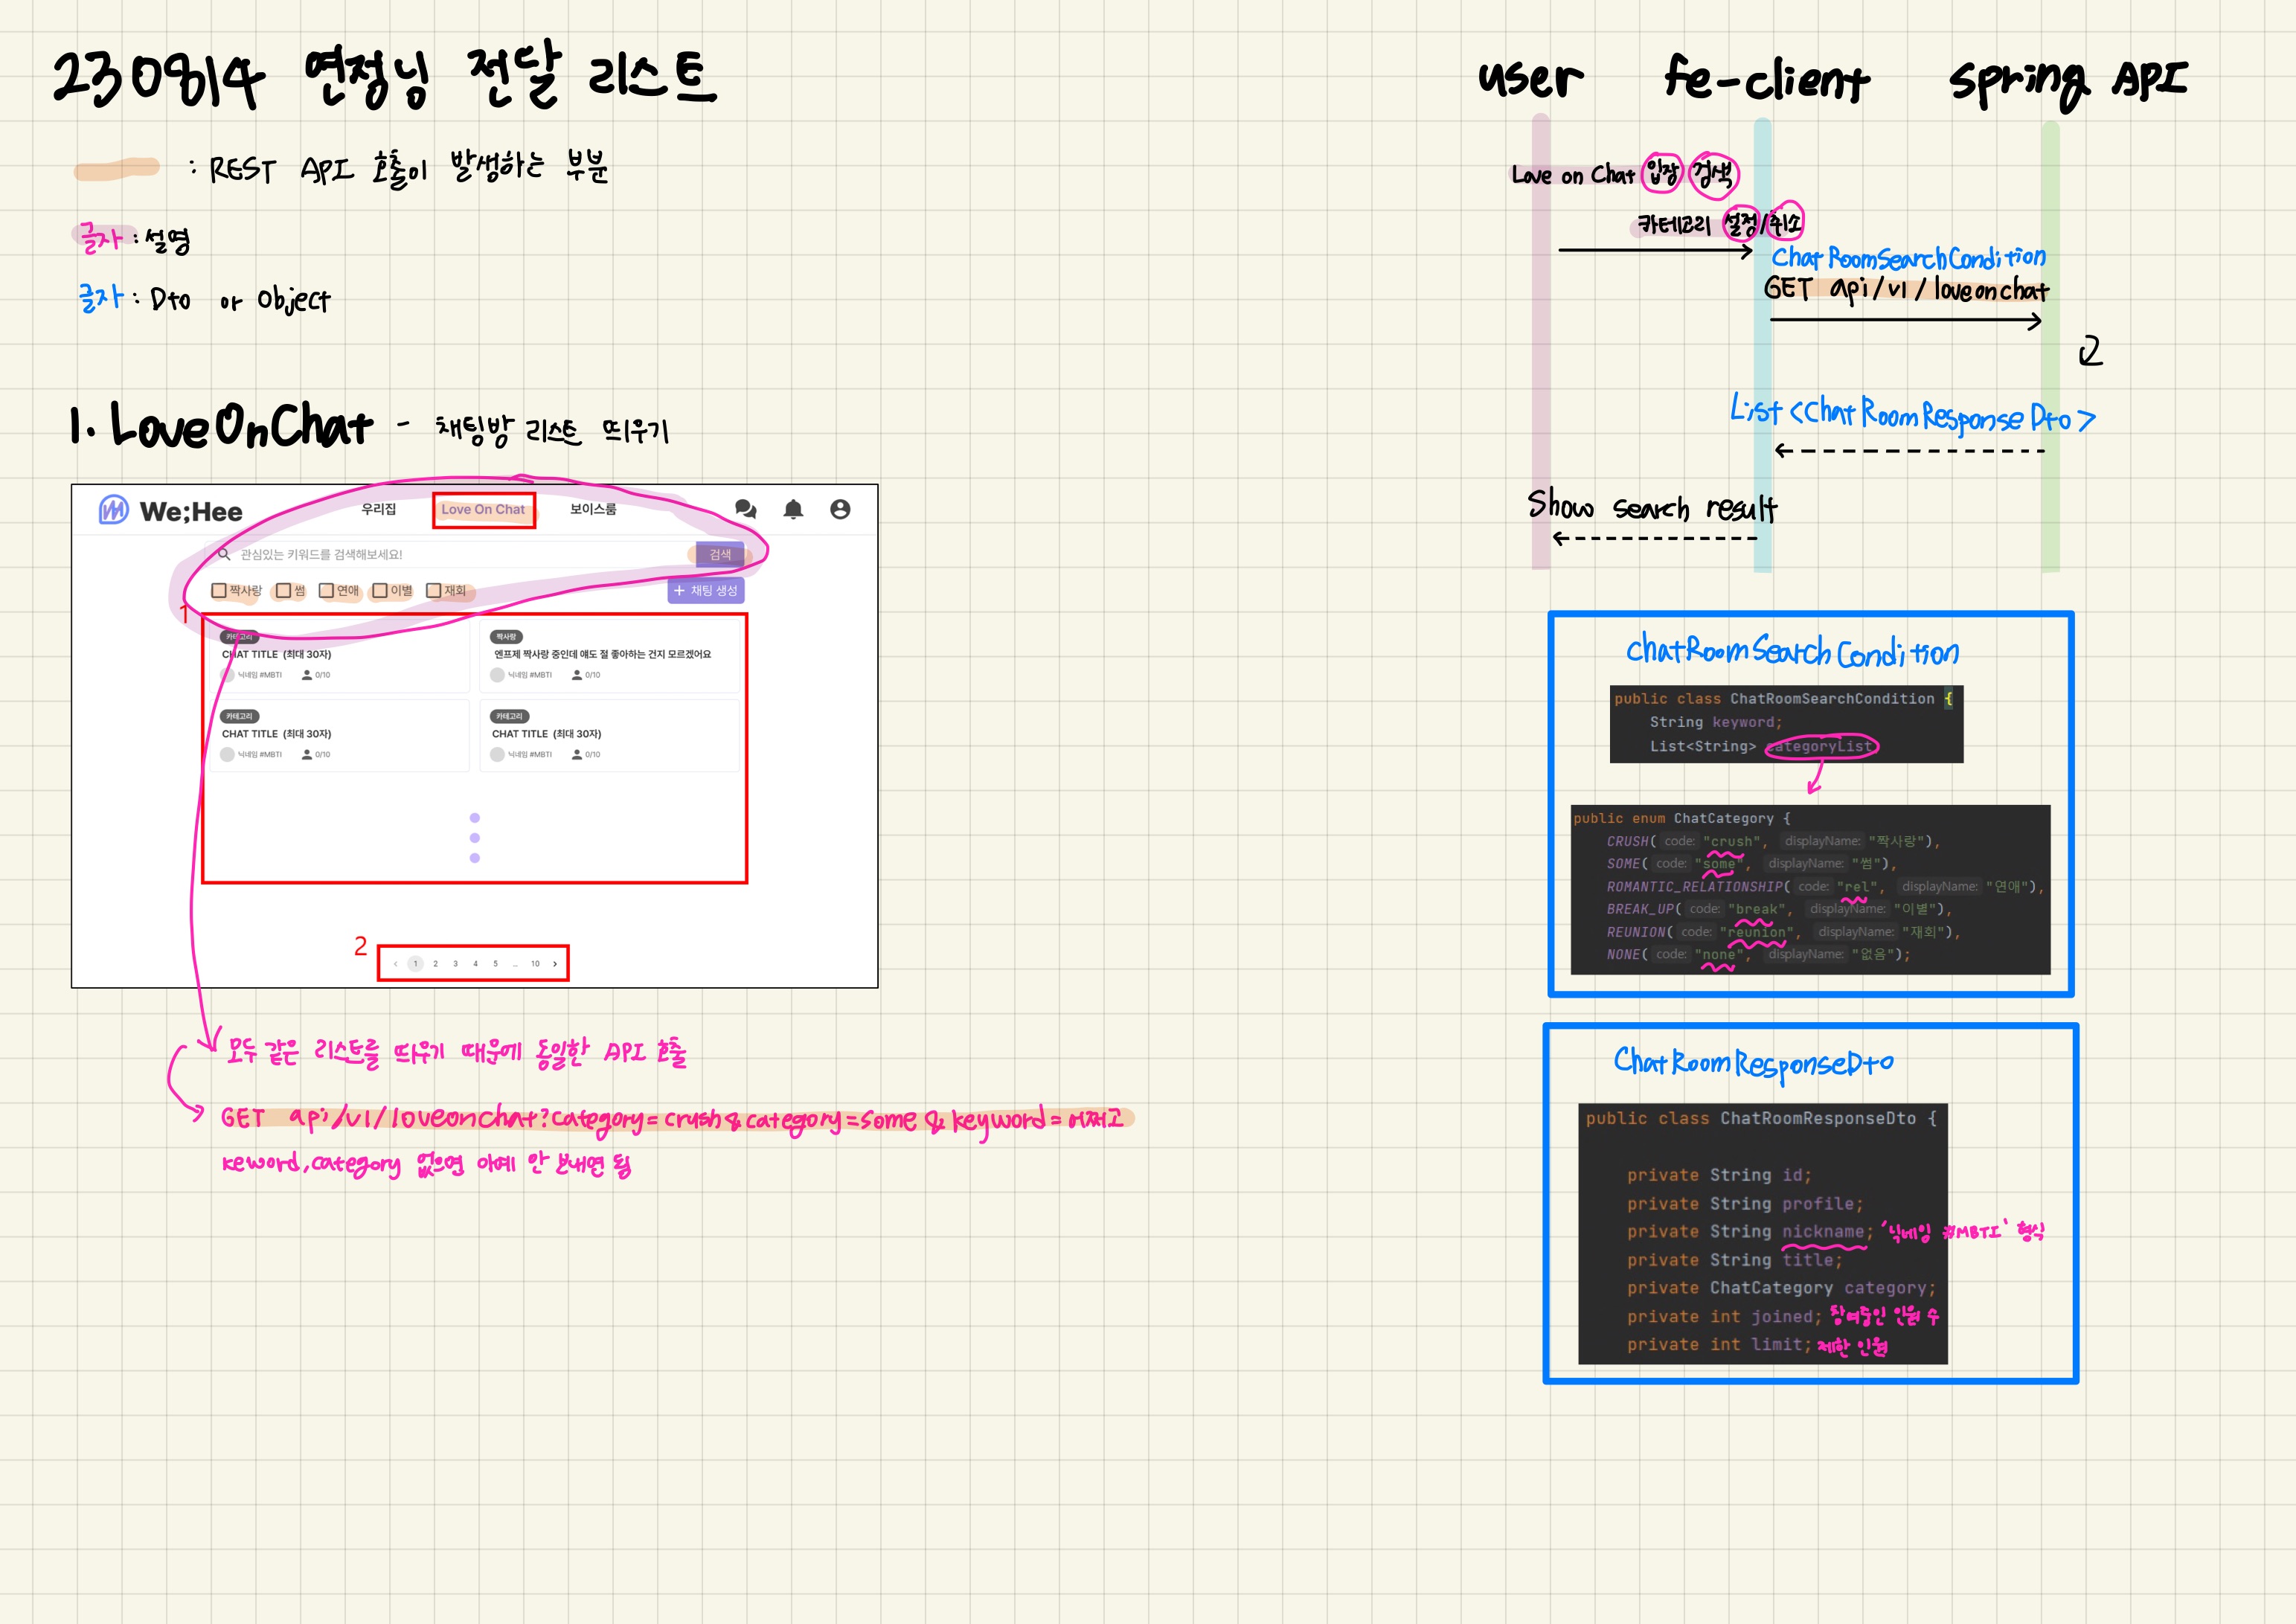 230814 연정님 전달 리스트
: REST API 호출이 발생하는 부분
글자 : 설명
글자 : Dto or Object
1. LoveOnChat - 채팅방 리스트 띄우기
We;Hee 우리집 Love On Chat 보이스룸
관심있는 키워드를 검색해보세요! 검색
짝사랑 썸 연애 이별 재회 + 채팅 생성
1
카테고리 짝사랑
CHAT TITLE (최대 30자) 엔프제 짝사랑 중인데 얘도 절 좋아하는 건지 모르겠어요
닉네임 #MBTI 0/10 닉네임 #MBTI 0/10
카테고리 카테고리
CHAT TITLE (최대 30자) CHAT TITLE (최대 30자)
닉네임 #MBTI 0/10 닉네임 #MBTI 0/10
2
< 1 2 3 4 5 ... 10 >
모두 같은 리스트를 띄우기 때문에 동일한 API 호출
GET api/v1/loveonchat?category=crush&category=some&keyword=어쩌고
keword,category 없으면 아예 안 보내면 됨
user fe-client spring API
Love on Chat 입장 검색
카테고리 설정/취소
ChatRoomSearchCondition
GET api/v1/loveonchat
List<ChatRoomResponseDto>
Show search result
ChatRoomSearchCondition
public class ChatRoomSearchCondition {
String keyword;
List<String> categoryList
public enum ChatCategory {
CRUSH( code: "crush", displayName: "짝사랑"),
SOME( code: "some", displayName: "썸"),
ROMANTIC_RELATIONSHIP( code: "rel", displayName: "연애"),
BREAK_UP( code: "break", displayName: "이별"),
REUNION( code: "reunion", displayName: "재회"),
NONE( code: "none", displayName: "없음");
ChatRoomResponseDto
public class ChatRoomResponseDto {
private String id;
private String profile;
private String nickname; '닉네임 #MBTI' 형식
private String title;
private ChatCategory category;
private int joined; 참여중인 인원 수
private int limit; 제한 인원